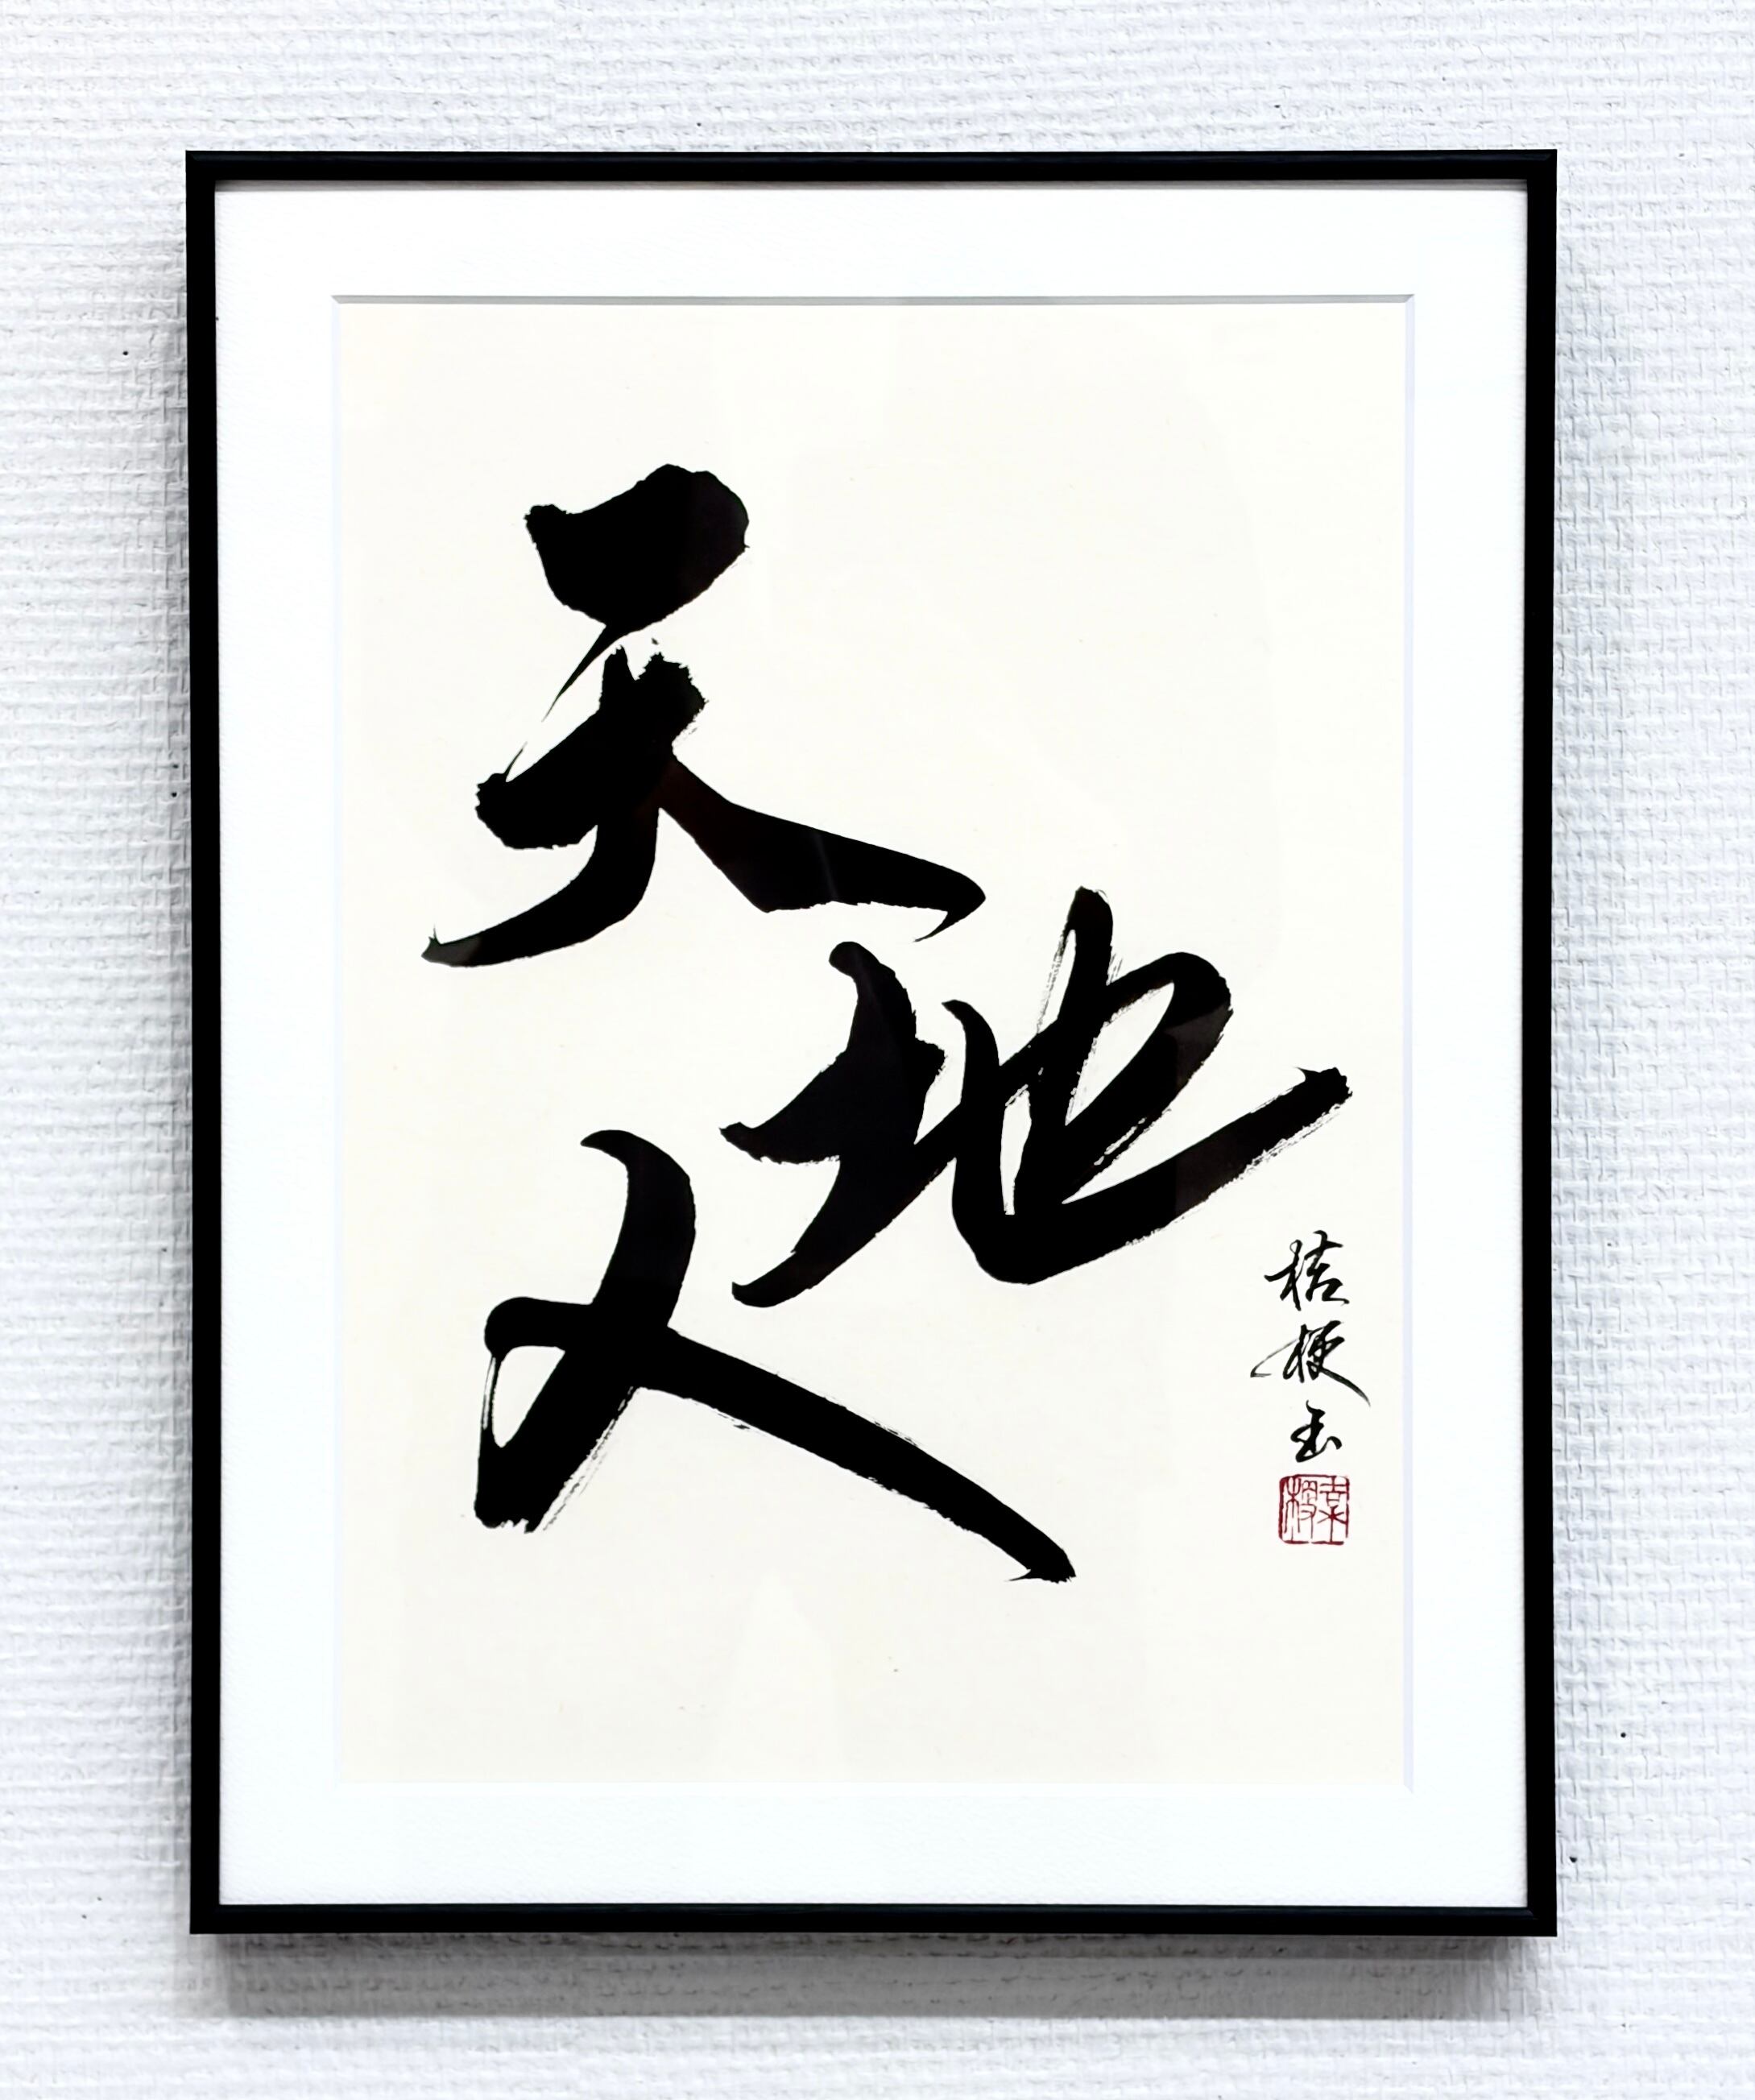 天
地
人
桔梗玉